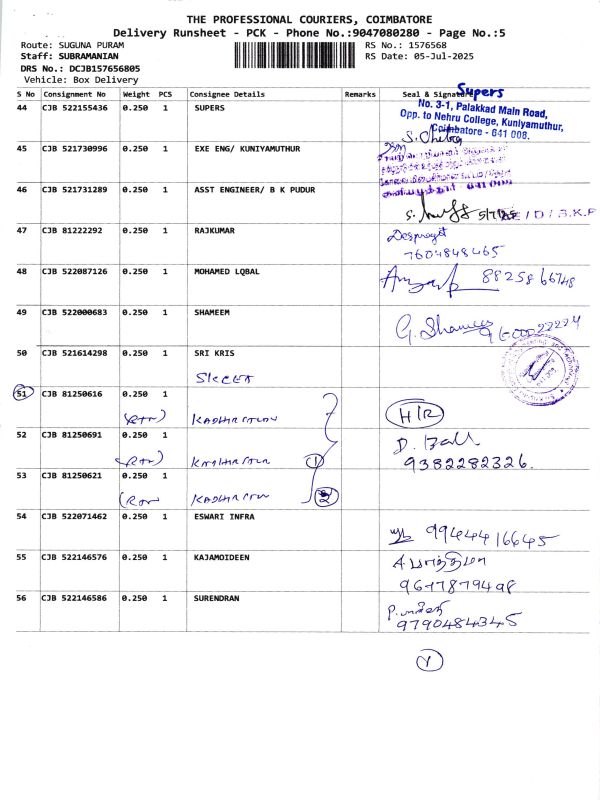 THE PROFESSIONAL COURIERS, COIMBATORE
Delivery Runsheet - PCK - Phone No.:9047080280 - Page No.:5
Route: SUGUNA PURAM RS No.: 1576568
Staff: SUBRAMANIAN RS Date: 05-Jul-2025
DRS No.: DCJB157656805
Vehicle: Box Delivery
S No Consignment No Weight PCS Consignee Details Remarks Seal & Signature
Supers
No. 3-1, Palakkad Main Road,
Opp. to Nehru College, Kuniyamuthur,
Coimbatore - 641 008.
44 CJB 522155436 0.250 1 SUPERS
45 CJB 521730996 0.250 1 EXE ENG/ KUNIYAMUTHUR
46 CJB 521731289 0.250 1 ASST ENGINEER/ B K PUDUR
5/7/25 AE/D/B.K.P
47 CJB 81222292 0.250 1 RAJKUMAR
7604848465
48 CJB 522087126 0.250 1 MOHAMED LQBAL 88258 66748
49 CJB 522000683 0.250 1 SHAMEEM
G. Shameem 9600022224
50 CJB 521614298 0.250 1 SRI KRIS
51 CJB 81250616 0.250 1
H/R
52 CJB 81250691 0.250 1
9382282326.
1
53 CJB 81250621 0.250 1
2
54 CJB 522071462 0.250 1 ESWARI INFRA
9944416645
55 CJB 522146576 0.250 1 KAJAMOIDEEN
9677879498
56 CJB 522146586 0.250 1 SURENDRAN
9790484345